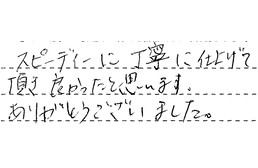 スピーディーに丁寧に仕上げて
頂き良かったと思います。
ありがとうございました。